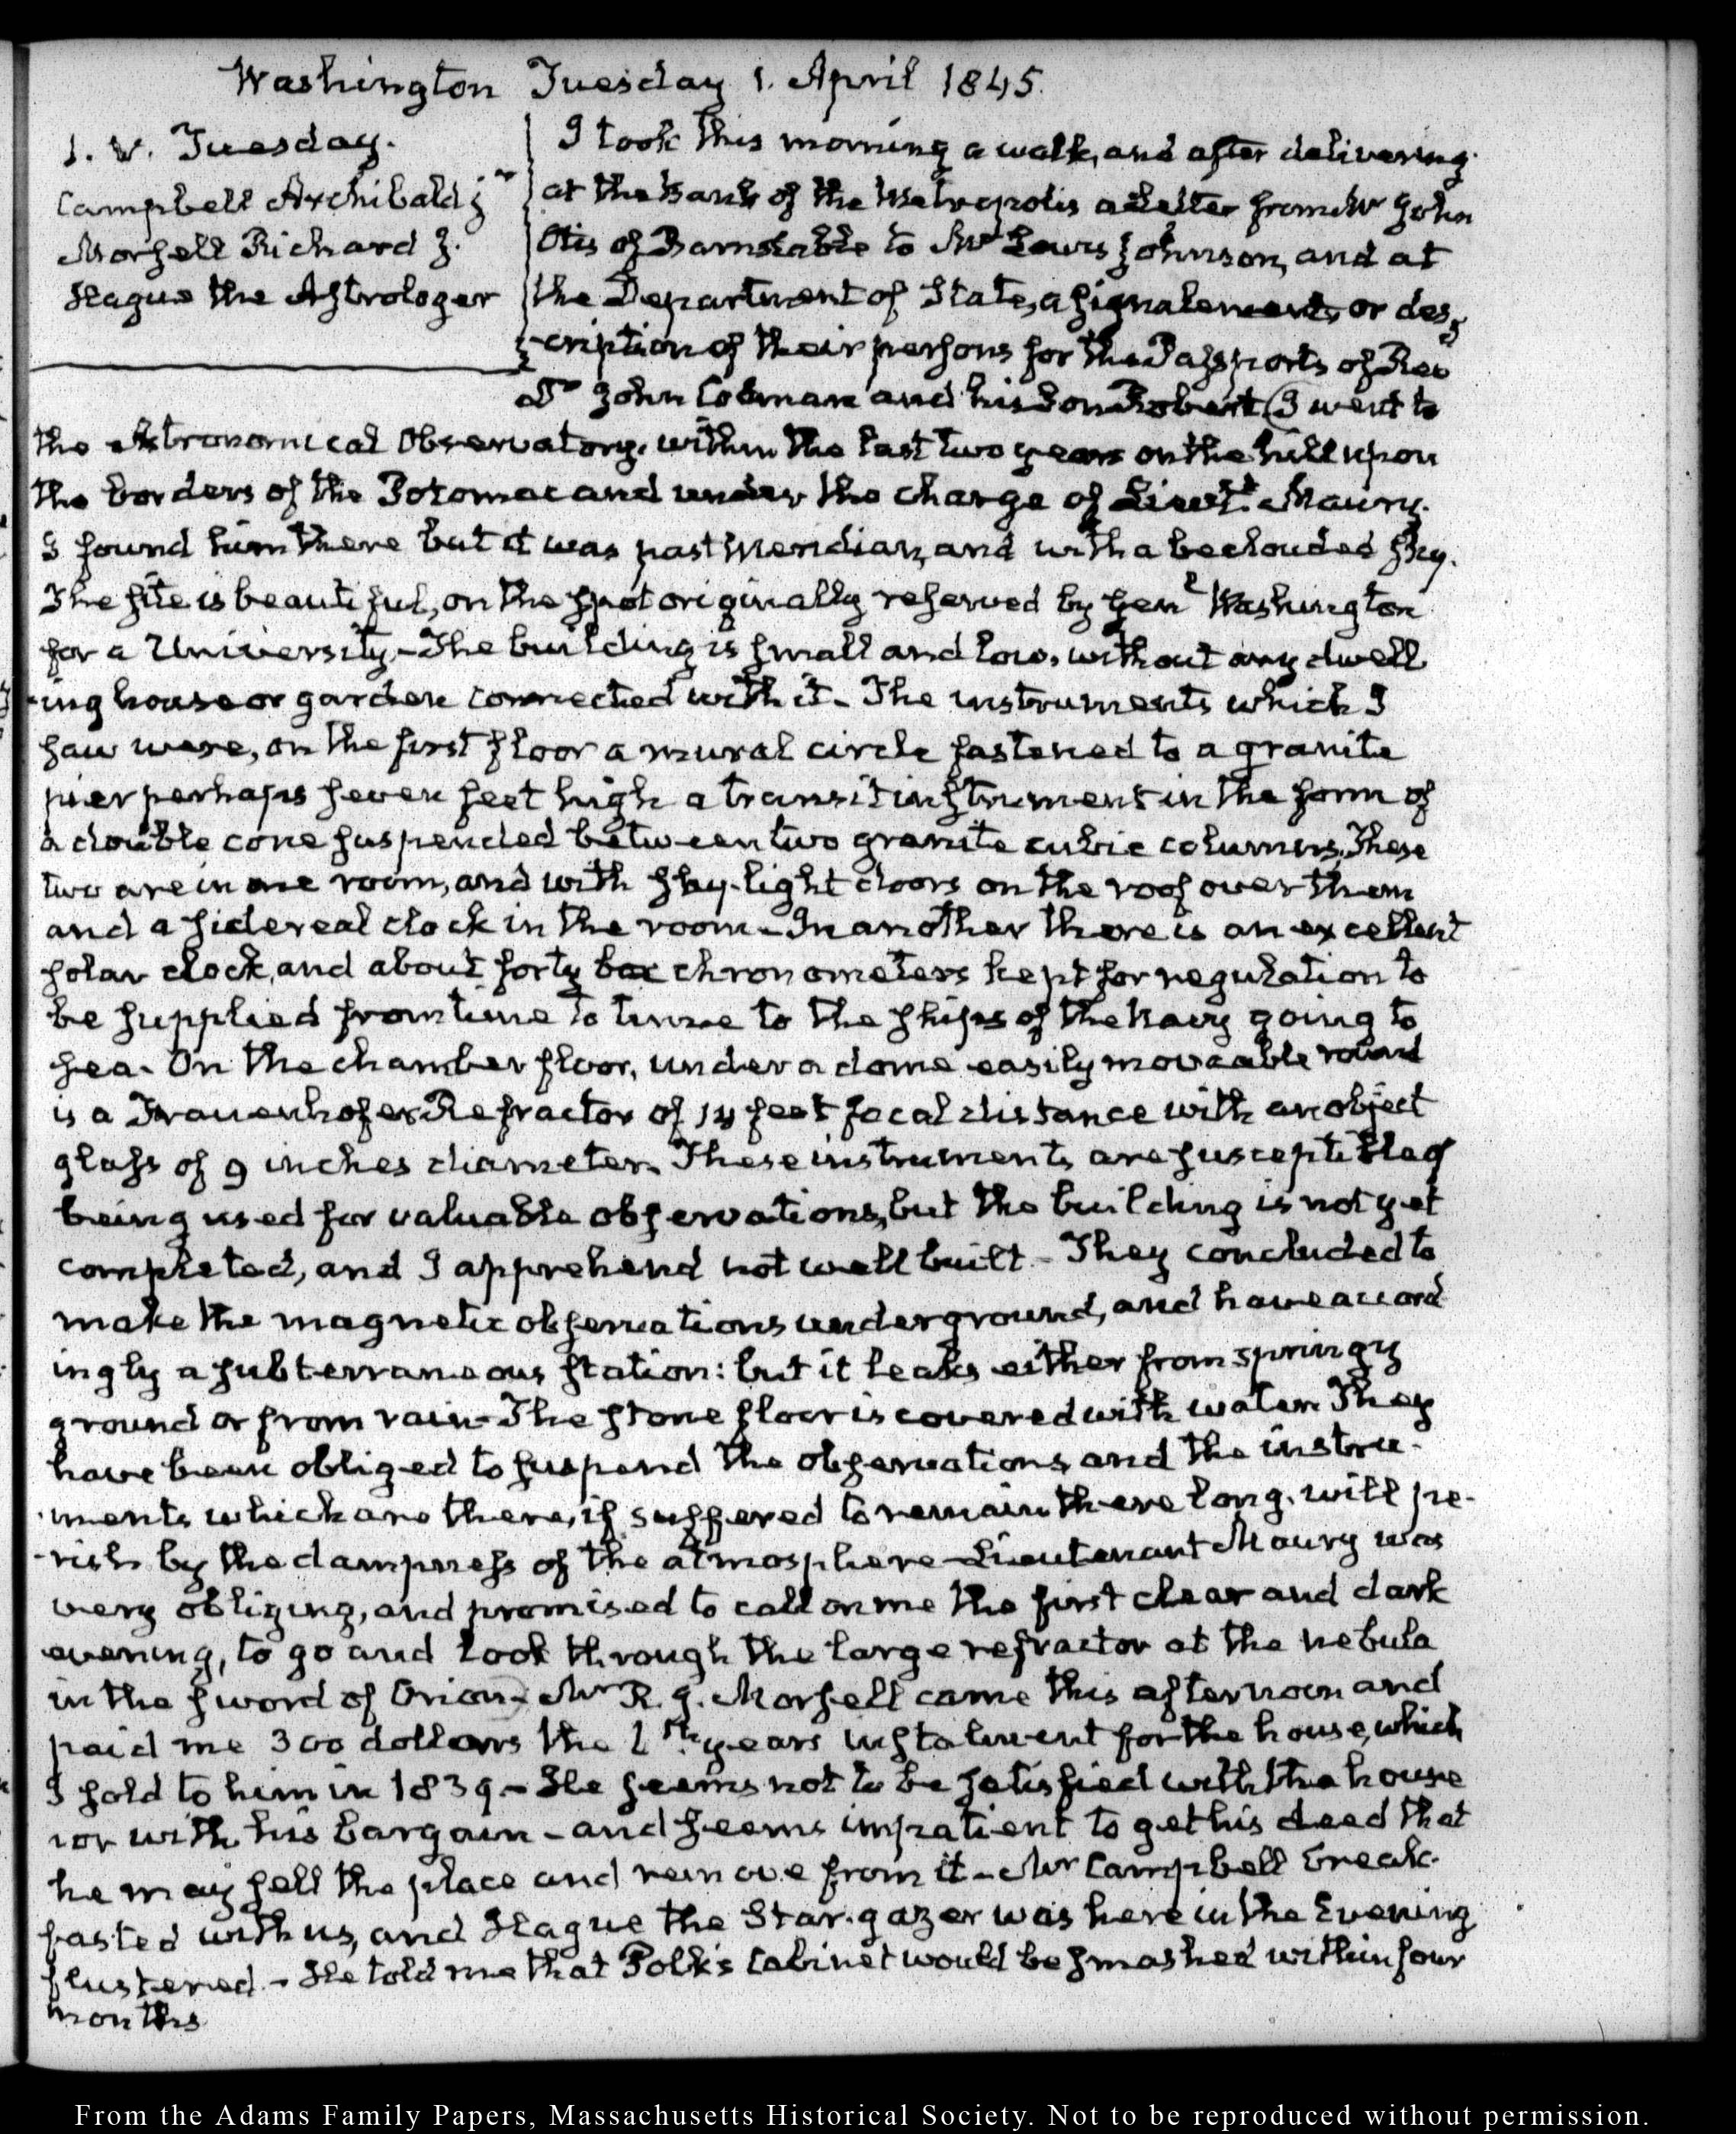 Washington Tuesday 1. April 1845.
1. V. Tuesday.
Campbell Archibald jr
Morsell Richard J.
Hague the Astrologer
I took this morning a walk, and after delivering
at the Bank of the Metropolis a letter from Mr John
Otis of Barnstable to Mr Lewis Johnson, and at
the Department of State, a signalement, or des-
-cription of their persons for the Passports of Rev
Dr John Codman and his Son Robert (I went to
the Astronomical Observatory, within the last two years on the hill upon
the borders of the Potomac and under the charge of Lieut.t Maury.
I found him there but it was past Meridian, and with a beclouded sky.
The site is beautiful, on the spot originally reserved by Genl Washington
for a University,—The building is small and low, without any dwell
-ing house or garden connected with it—The instruments which I
saw were, on the first floor a mural circle fastened to a granite
pier perhaps seven feet high a transit instrument in the form of
a double cone suspended between two granite cubic columns. These
two are in one room, and with sky-light doors on the roof over them
and a sidereal clock in the room—In another there is an excellent
solar clock, and about forty box chronometers kept for regulation to
be supplied from time to time to the ships of the Navy going to
sea. On the chamber floor, under a dome easily moveable round
is a Frauenhofer Refractor of 14 feet focal distance with an object
glass of 9 inches diameter. These instruments are susceptible of
being used for valuable observations, but the building is not yet
completed, and I apprehend not well built—They concluded to
make the magnetic observations underground, and have accord
ingly a subterraneous station: but it leaks either from springy
ground or from rain—The stone floor is covered with water. They
have been obliged to suspend the observations and the instru-
-ments which are there, if suffered to remain there long, will pe-
-rish by the dampness of the atmosphere—Lieutenant Maury was
very obliging, and promised to call on me the first clear and dark
evening, to go and look through the large refractor at the nebula
in the sword of Orion) Mr R. J. Morsell came this afternoon and
paid me 300 dollars the years instalment for the house, which
I sold to him in 1839—He seems not to be satisfied with the house
nor with his bargain—and seems impatient to get his deed that
he may sell the place and remove from it—Mr Campbell break-
fasted with us, and Hague the Star-gazer was here in the Evening
flustered.—He told me that Polk's Cabinet would be smashed within four
months
From the Adams Family Papers, Massachusetts Historical Society. Not to be reproduced without permission.